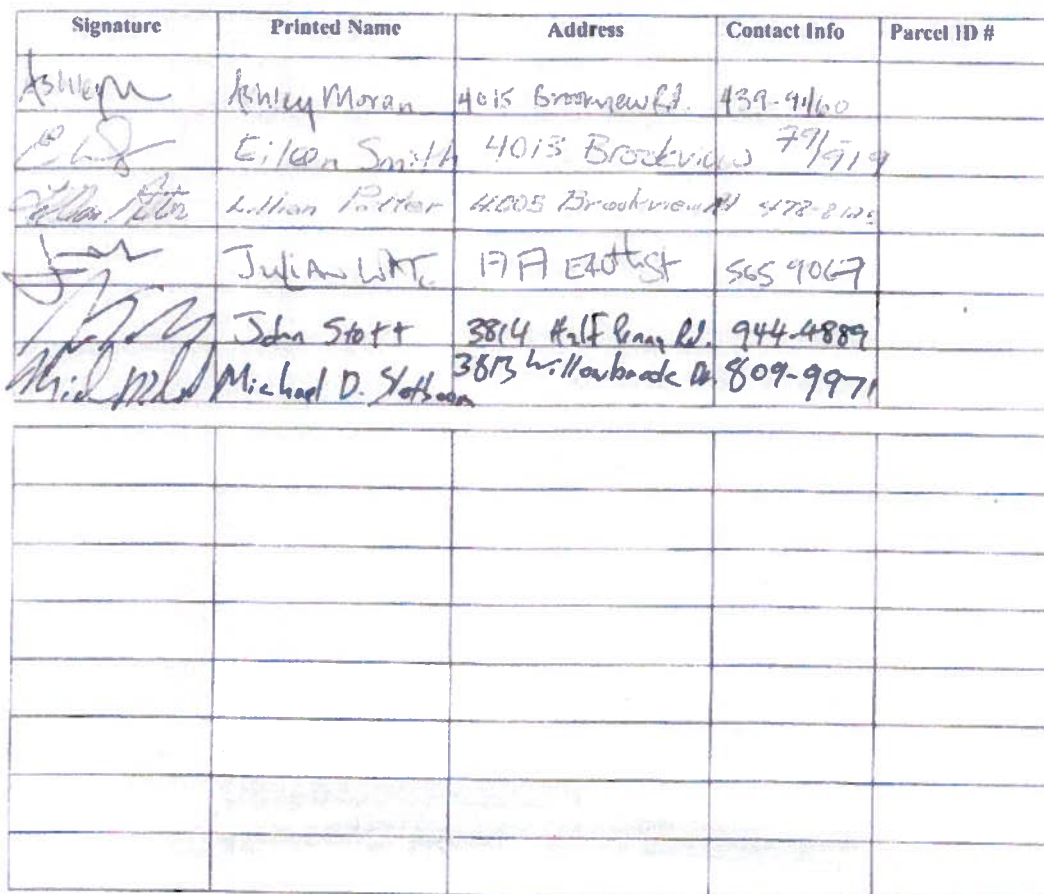 Signature Printed Name Address Contact Info Parcel ID #
Ashley Ashley Moran 4015 Brookview Rd. 439-9160
Eileen Smith 4013 Brookview 79/919
Lillian Potter 4005 Brookview Rd 478-8125
Julian 17 E40thSt 565 9067
John Stott 3814 Half Penny Rd. 944-4889
Michael D. Slotboom 3813 Willowbrook Dr. 809-9971